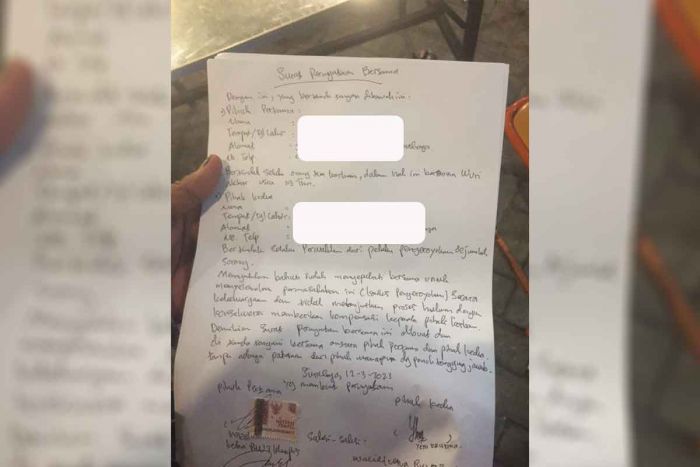 Surat Pernyataan Bersama
Dengan ini, yang bertanda tangan dibawah ini:
Pihak Pertama :
Nama :
Tempat/Tgl Lahir :
Alamat :
No Telp
Bertindak selaku orang tua korban, dalam hal ini bernama
Pihak Kedua
Nama :
Tempat/Tgl Lahir :
Alamat
No. Telp
Bertindak selaku Perwakilan dari pelaku pengeroyokan sejumlah
orang.
Menyatakan bahwa sudah menyepakati bersama untuk
menyelesaikan permasalahan ini (kasus Pengeroyokan) secara
kekeluargaan dan tidak melanjutkan proses hukum dengan
konsekuensi memberikan kompensasi kepada pihak korban.
Demikian surat pernyataan bersama ini dibuat dan
di tanda tangani bersama antara pihak pertama dan pihak kedua,
tanpa adanya paksaan dari pihak manapun dg penuh tanggung jawab.
Surabaya, 12-3-2023
Yang membuat pernyataan
pihak Pertama
pihak kedua
Saksi-saksi